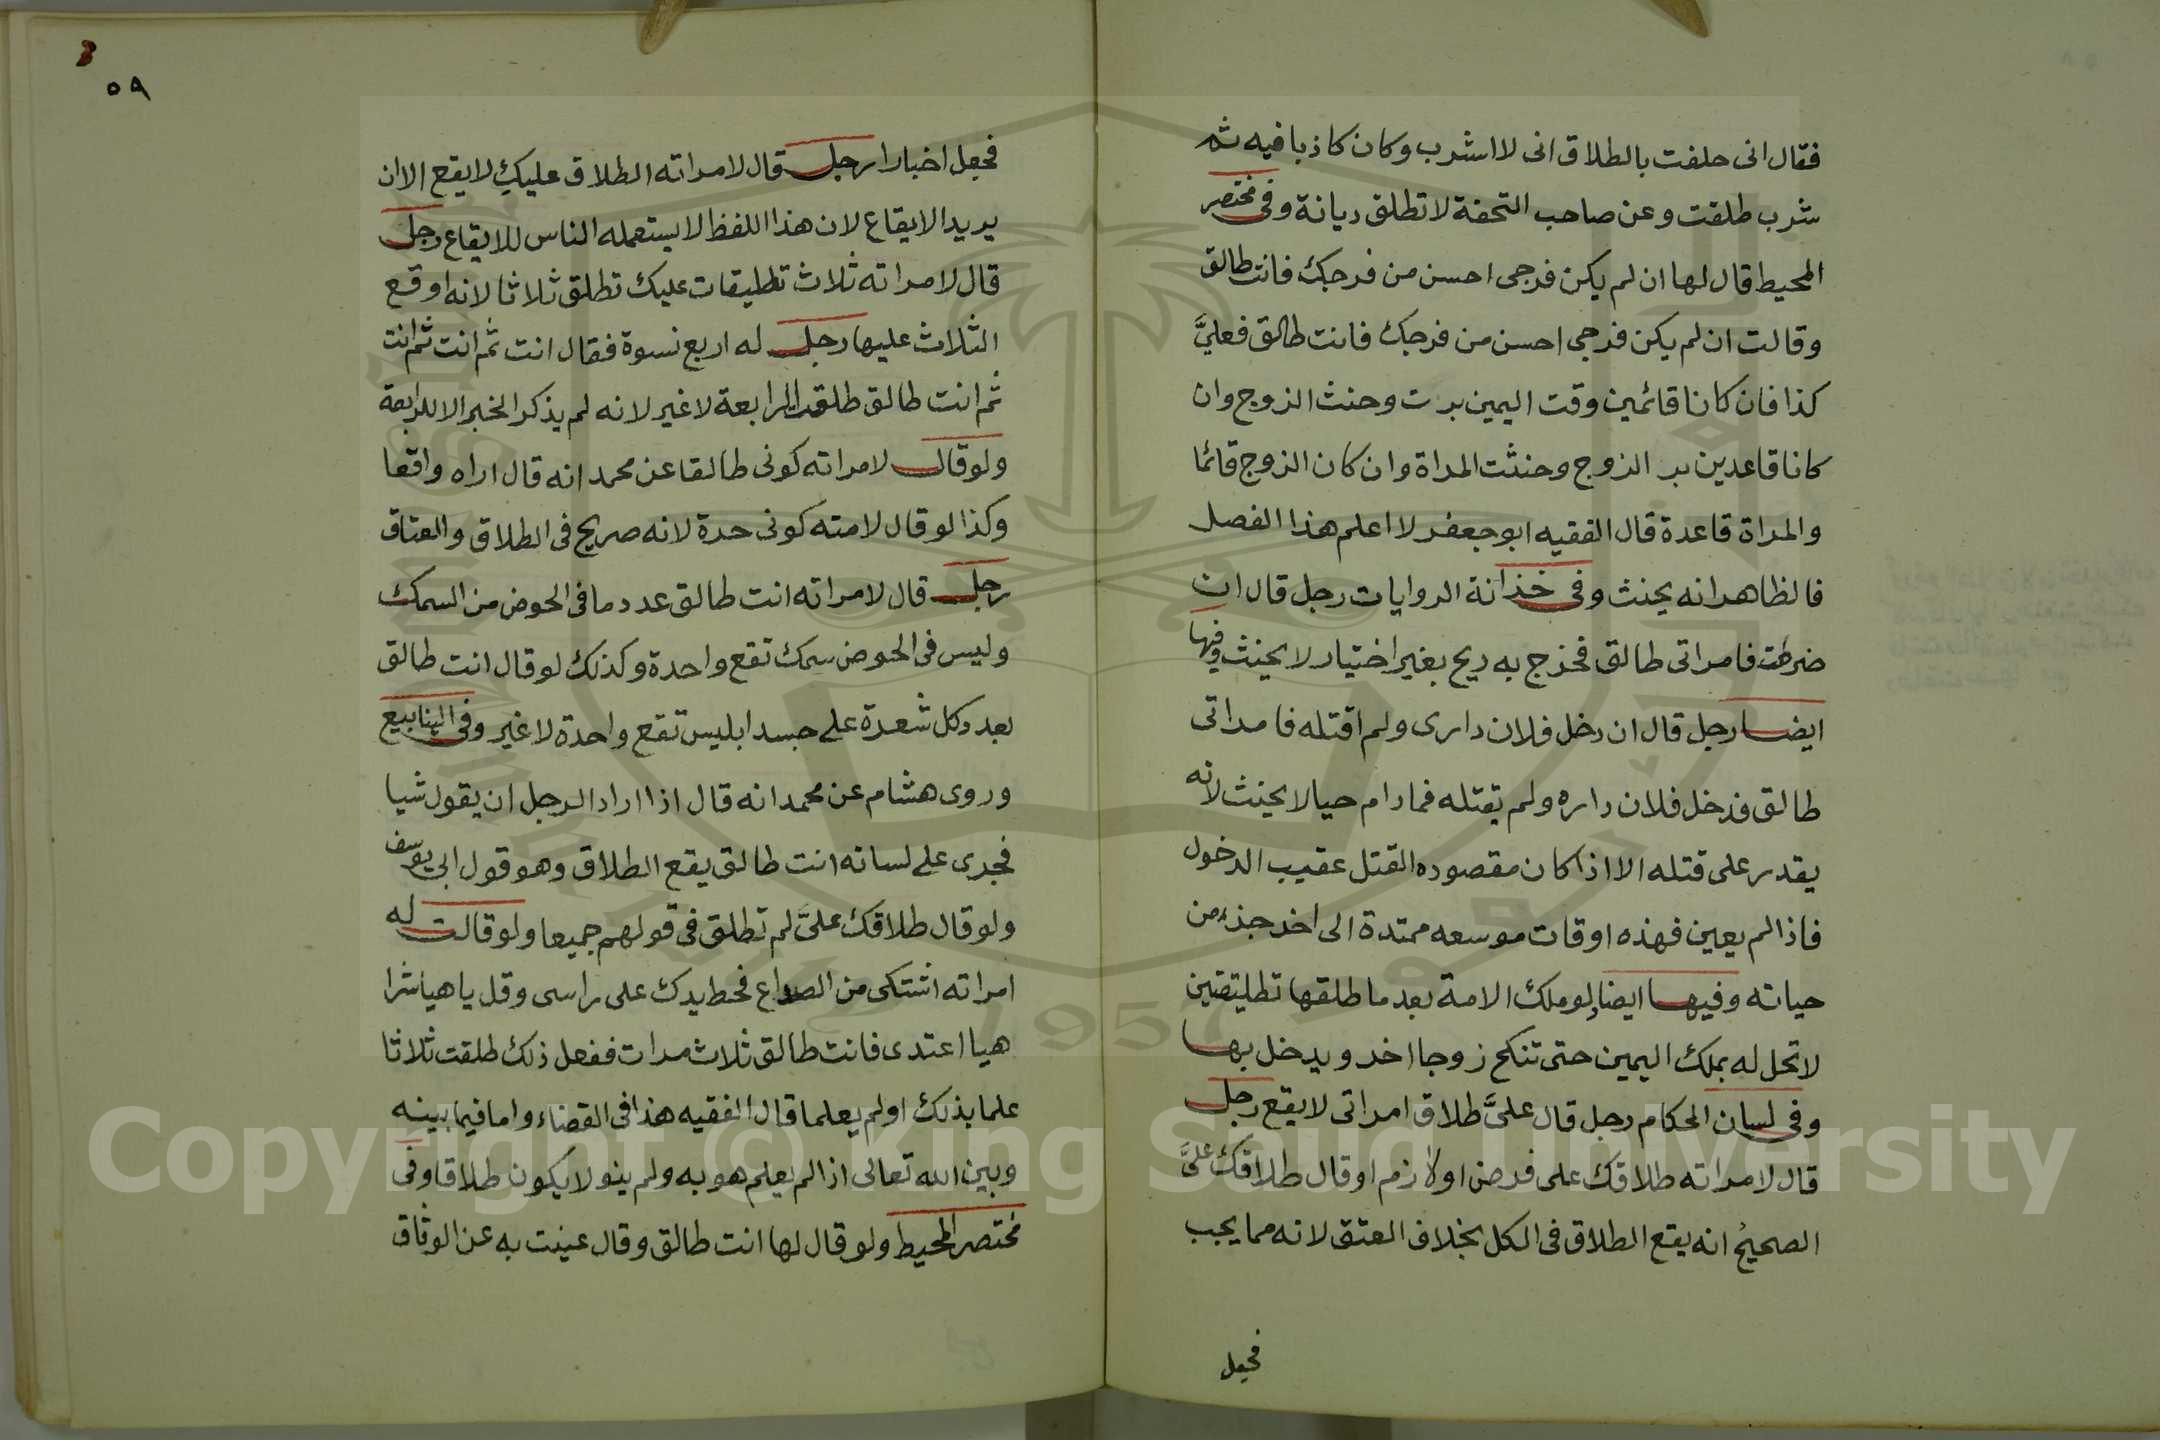 فقال انى حلفت بالطلاق انى لا اشرب وكان كاذبا فيه ثم
شرب طلقت وعن صاحب التحفة لا تطلق ديانة وفى مختصر
المحيط قال لها ان لم يكن فرجى احسن من فرجك فانت طالق
وقالت ان لم يكن فرجى احسن من فرجك فانت طالق فعليَّ
كذا فان كانا قائمين وقت اليمين برت وحنث الزوج وان
كانا قاعدين بر الزوج وحنثت المراة وان كان الزوج قائما
والمراة قاعدة قال الفقيه ابو جعفر لا اعلم هذا الفصل
فالظاهر انه يحنث وفى خزانة الروايات رجل قال ان
ضرطت فامراتى طالق فخرج به ريح بغير اختيار لا يحنث وفيها
ايضا رجل قال ان دخل فلان دارى ولم اقتله فامراتى
طالق فدخل فلان داره ولم يقتله فمادام حيا لا يحنث لانه
يقدر على قتله الا اذا كان مقصوده القتل عقيب الدخول
فاذا لم يعين فهذه اوقات موسعه ممتدة الى اخر جزء من
حياته وفيها ايضا ولو ملك الامة بعد ما طلقها تطليقتين
لا تحل له بملك اليمين حتى تنكح زوجا اخر ويدخل بها
وفى لسان الحكام رجل قال عليَّ طلاق امراتى لا يقع رجل
قال لامراته طلاقك على فرض او لازم او قال طلاقك عليَّ
الصحيح انه يقع الطلاق فى الكل بخلاف العتق لانه مما يجب
فجعل
٥٩
فجعل اخبارا رجل قال لامراته الطلاق عليكِ لا يقع الا ان
يريد الايقاع لان هذا اللفظ لا يستعمله الناس للايقاع رجل
قال لامراته ثلاث تطليقات عليك تطلق ثلاثا لانه اوقع
الثلاث عليها رجل له اربع نسوة فقال انت ثم انت ثم انت
ثم انت طالق طلقت الرابعة لا غير لانه لم يذكر الخبر الا للرابعة
ولو قال لامراته كونى طالقا عن محمد انه قال اراه واقعا
وكذا لو قال لامته كونى حرة لانه صريح فى الطلاق والعتاق
رجل قال لامراته انت طالق عدد ما فى الحوض من السمك
وليس فى الحوض سمك تقع واحدة وكذلك لو قال انت طالق
بعدد كل شعرة على جسد ابليس تقع واحدة لا غير وفى الينابيع
وروى هشام عن محمد انه قال اذا اراد الرجل ان يقول شيا
فجرى على لسانه انت طالق يقع الطلاق وهو قول ابى يوسف
ولو قال طلاقك عليَّ لم تطلق فى قولهم جميعا ولو قالت له
امراته اشتكى من الصداع فحط يدك على راسى وقل يا هيا شرا
هيا اعتدى فانت طالق ثلاث مرات ففعل ذلك طلقت ثلاثا
علما بذلك او لم يعلما قال الفقيه هذا فى القضاء واما فيما بينه
وبين الله تعالى اذا لم يعلم هو به ولم ينو لا يكون طلاقا وفى
مختصر المحيط ولو قال لها انت طالق وقال عنيت به عن الوثاق
Copyright © King Saud University
1957